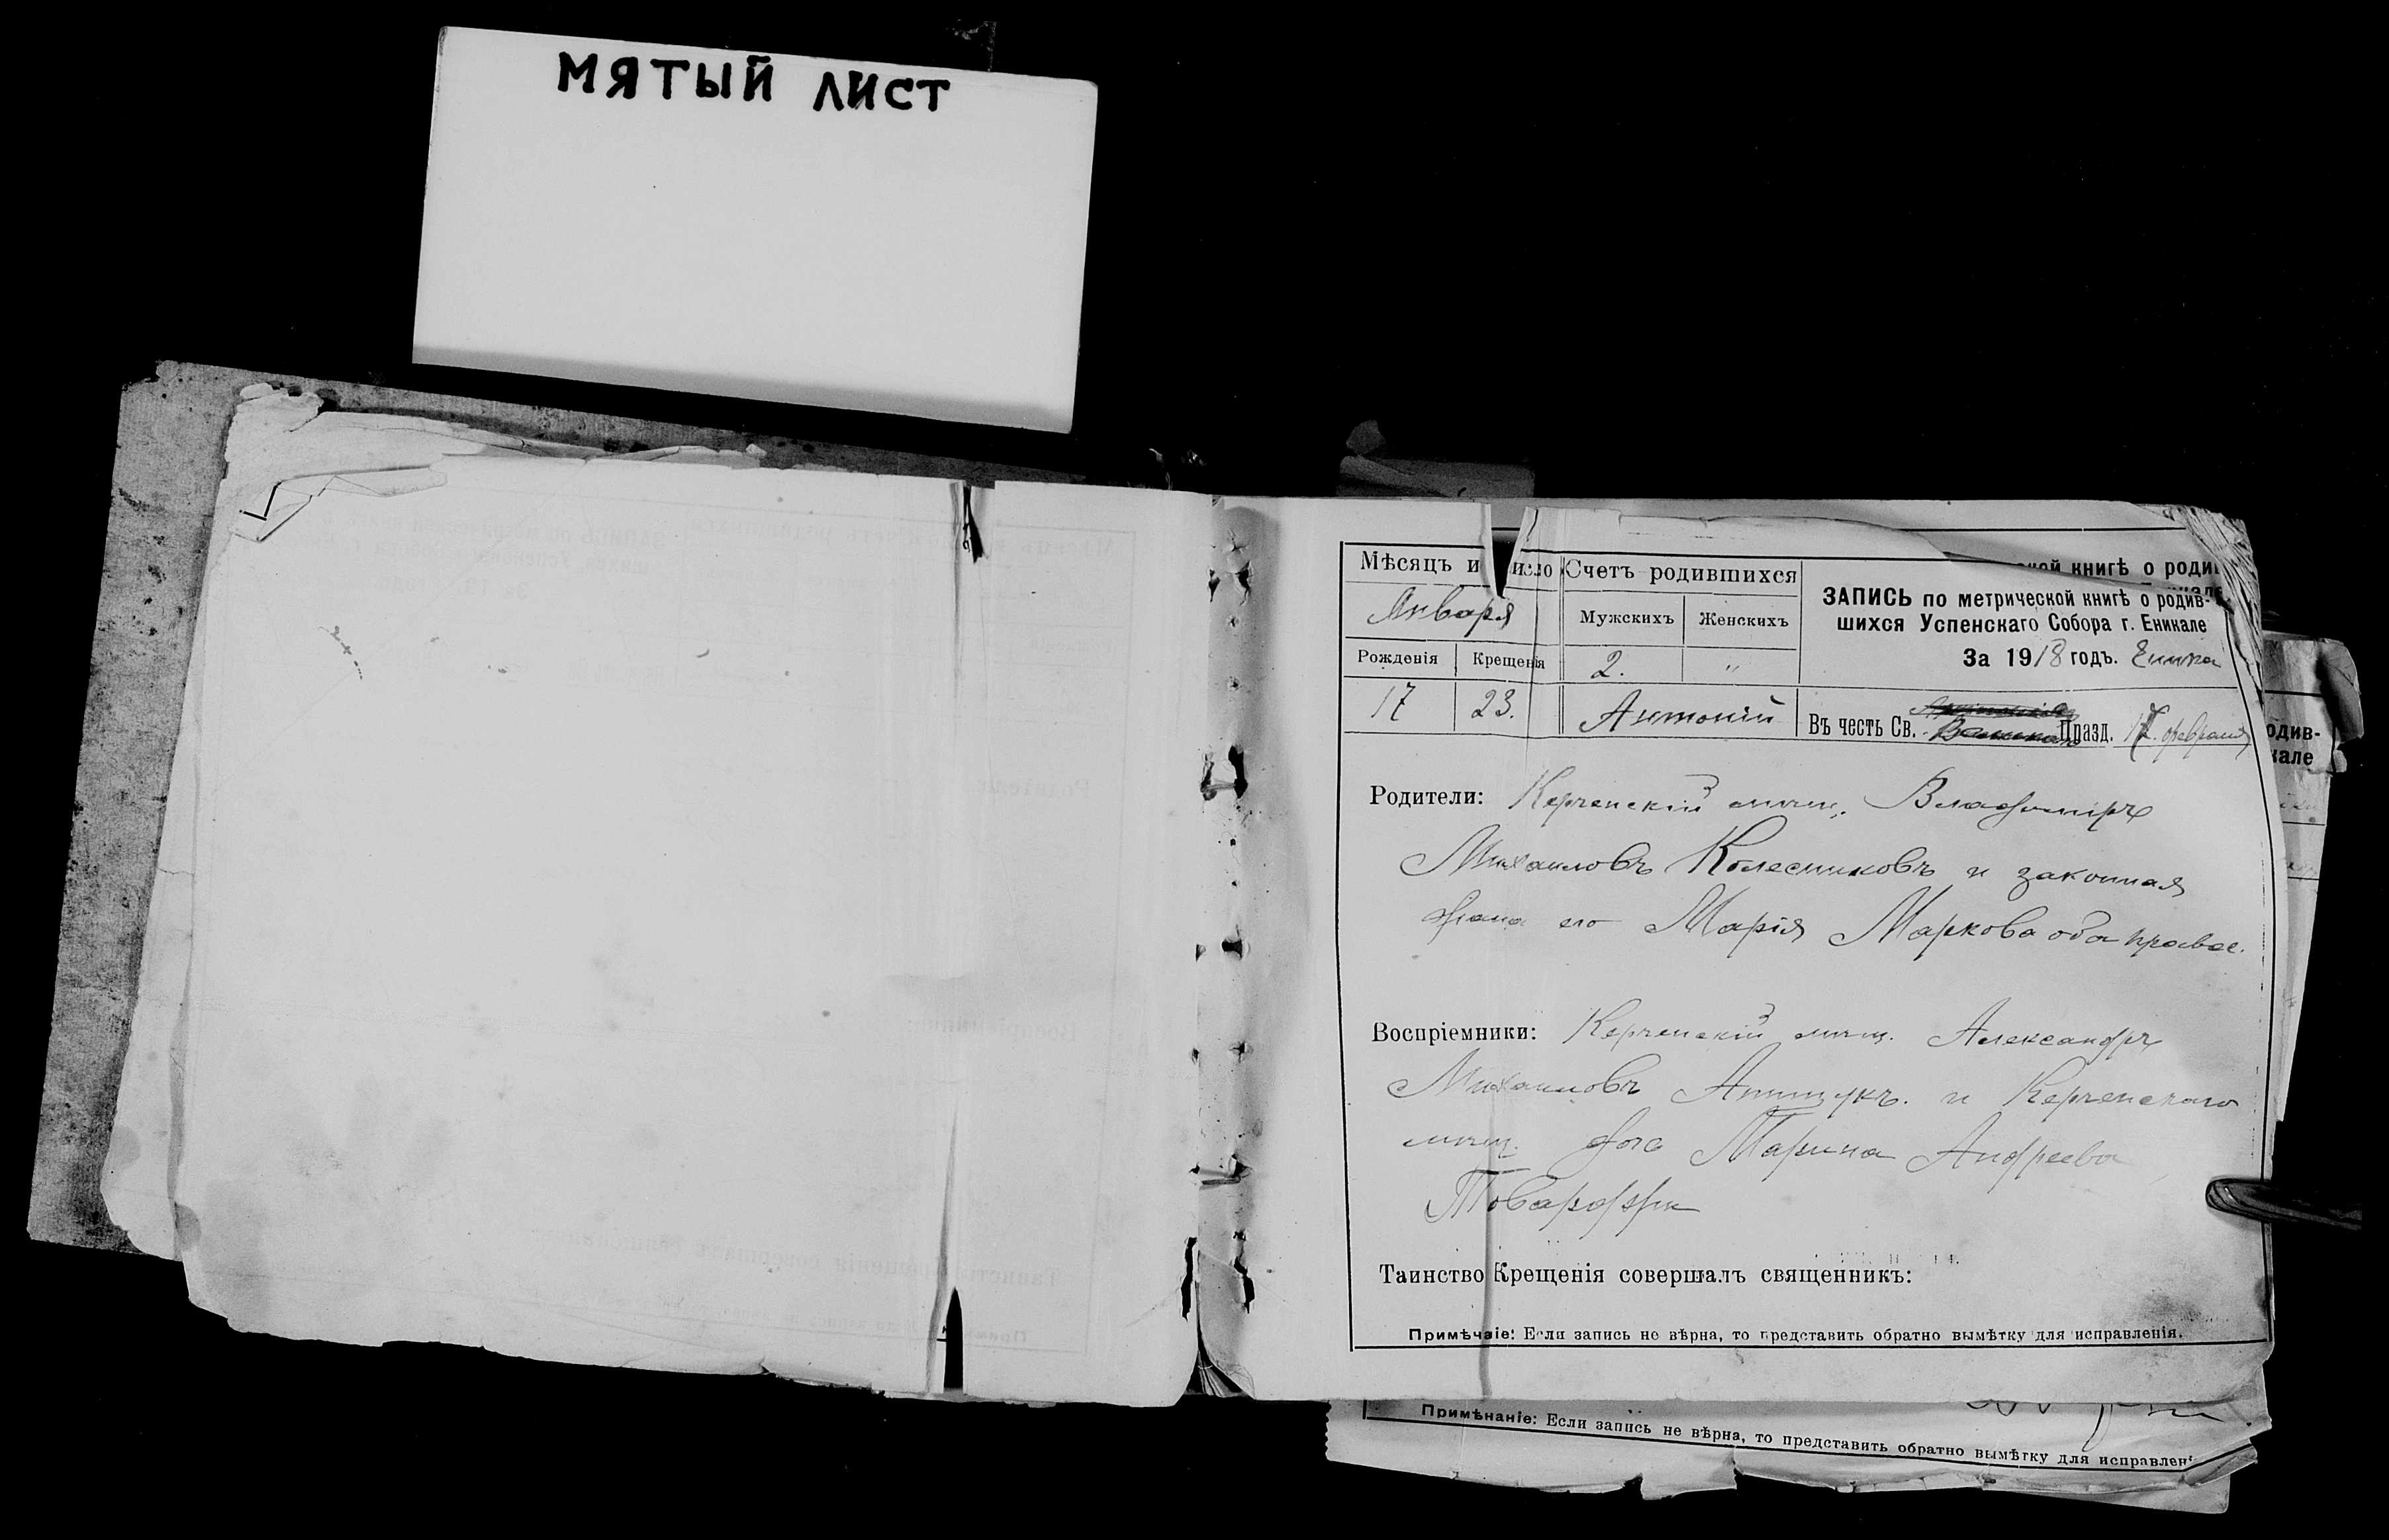 МЯТЫЙ ЛИСТ
Мѣсяцъ и число
Января
Рожденія Крещенія
17 23.
Счетъ родившихся
Мужскихъ Женскихъ
2. "
Антоній
кой книгѣ о роди
ЗАПИСЬ по метрической книгѣ о родив-
шихся Успенскаго Собора г. Еникале
За 1918 годъ.
Въ честь Св. Празд. 17. февраля
одив-
кале
Родители: Керченскій мѣщ. Владиміръ
Михаиловъ Колесниковъ и законная
жена его Марія Маркова оба правос.
Воспріемники: Керченскій мѣщ. Александръ
Михаиловъ и Керченскаго
мѣщ. Марина Андреева
Таинство Крещенія совершалъ священникъ:
Примѣчаіе: Если запись не вѣрна, то представить обратно вымѣтку для исправленія.
Примѣнаніе: Если запись не вѣрна, то представить обратно вымѣтку для исправлені